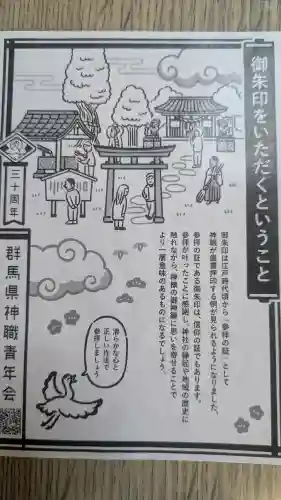 御朱印をいただくということ
御朱印は江戸時代頃から「参拝の証」として
神職が直書押印する例が見られるようになりました。
参拝の証である御朱印は、信仰の証でもあります。
参拝が叶ったことに感謝し、神社の縁起や地域の歴史に
触れながら、神様の御神縁に思いを寄せることで
より一層意味のあるものになるでしょう。
清らかな心と
正しい作法で
参拝しましょう
三十周年
群馬県神職青年会